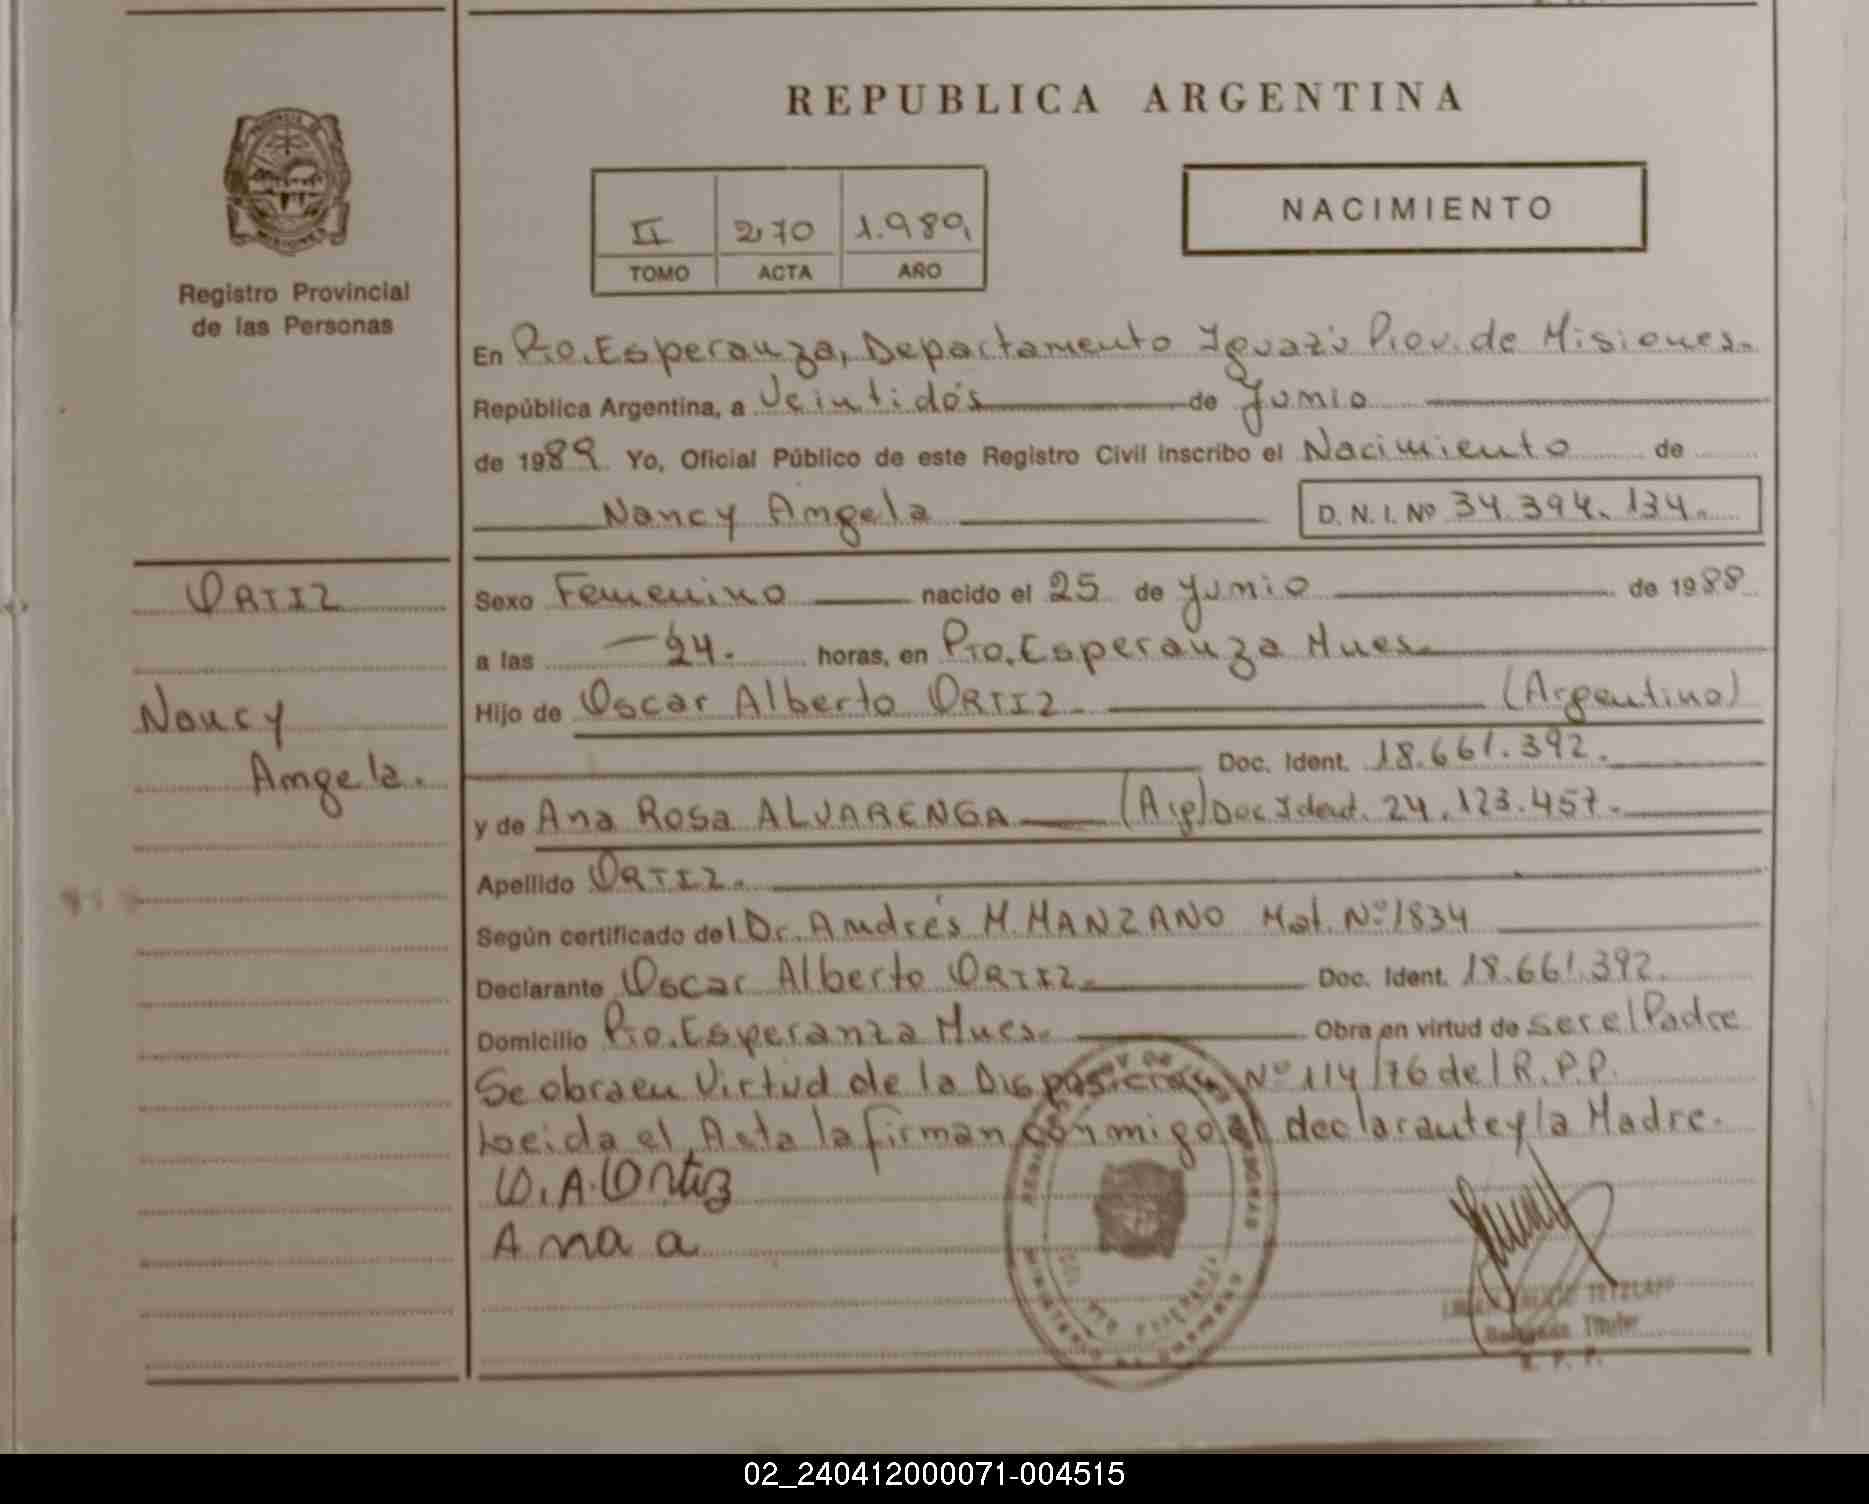 REPUBLICA ARGENTINA
PROVINCIA DE
MISIONES
Registro Provincial
de las Personas
NACIMIENTO
II 270 1.989,
TOMO ACTA AÑO
En Pto. Esperanza, Departamento Iguazú Prov. de Misiones.
República Argentina, a Veintidós de Junio
de 1989 Yo, Oficial Público de este Registro Civil inscribo el Nacimiento de
Nancy Angela D.N.I. Nº 34.394.134.
ORTIZ
Nancy
Angela.
Sexo Femenino nacido el 25 de Junio de 1988
a las 24. horas, en Pto. Esperanza Mnes.
Hijo de Oscar Alberto ORTIZ. (Argentino)
Doc. Ident. 18.661.392.
y de Ana Rosa ALVARENGA (Arg) Doc Ident. 24.123.457.
Apellido ORTIZ.
Según certificado del Dr. Andrés M. MANZANO Mat. Nº 1834
Declarante Oscar Alberto ORTIZ. Doc. Ident. 18.661.392.
Domicilio Pto. Esperanza Mnes. Obra en virtud de ser el Padre
Se obra en Virtud de la Disposición Nº 114/76 del R.P.P.
Leida el Acta la firman conmigo el declarante y la Madre.
O.A. Ortiz
Ana a
TETZLAFF
Titular
R. P. P.
02_240412000071-004515